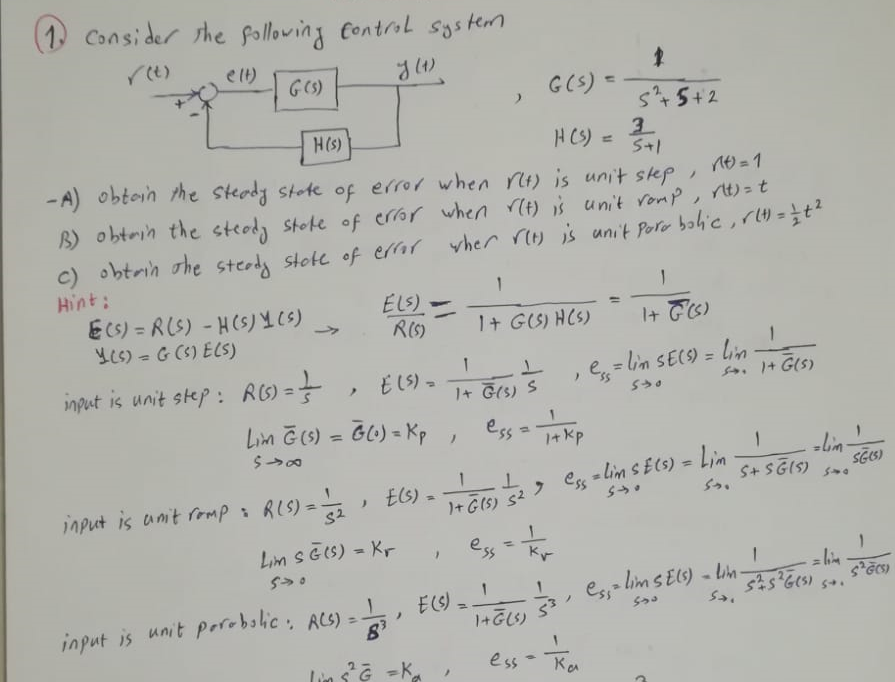 1. Consider the following Control system
r(t) e(t) G(s) y(t) , G(s) = 1 / (s² + s + 2)
+ -
H(s) H(s) = 3 / (s+1)
-A) obtain the steady state of error when r(t) is unit step , r(t) = 1
B) obtain the steady state of error when r(t) is unit ramp , r(t) = t
C) obtain the steady state of error when r(t) is unit parabolic , r(t) = ½ t²
Hint:
E(s) = R(s) - H(s) Y(s) → E(s)/R(s) = 1 / (1 + G(s) H(s)) = 1 / (1 + Ḡ(s))
Y(s) = G(s) E(s)
input is unit step : R(s) = 1/s , E(s) = 1/(1 + Ḡ(s)) 1/s , e_ss = lim s→0 sE(s) = lim s→0 1/(1 + Ḡ(s))
Lim s→∞ Ḡ(s) = Ḡ(0) = Kp , e_ss = 1/(1+Kp)
input is unit ramp : R(s) = 1/s² , E(s) = 1/(1+Ḡ(s)) 1/s² , e_ss = lim s→0 sE(s) = Lim s→0 1/(s + sḠ(s)) = lim s→0 1/(sḠ(s))
Lim s→0 sḠ(s) = Kr , e_ss = 1/Kr
input is unit parabolic : R(s) = 1/s³ , E(s) = 1/(1+Ḡ(s)) 1/s³ , e_ss = lim s→0 sE(s) = lim s→0 1/(s²+s²Ḡ(s)) = lim s→0 1/(s²Ḡ(s))
lim s²Ḡ = Ka , e_ss = 1/Ka